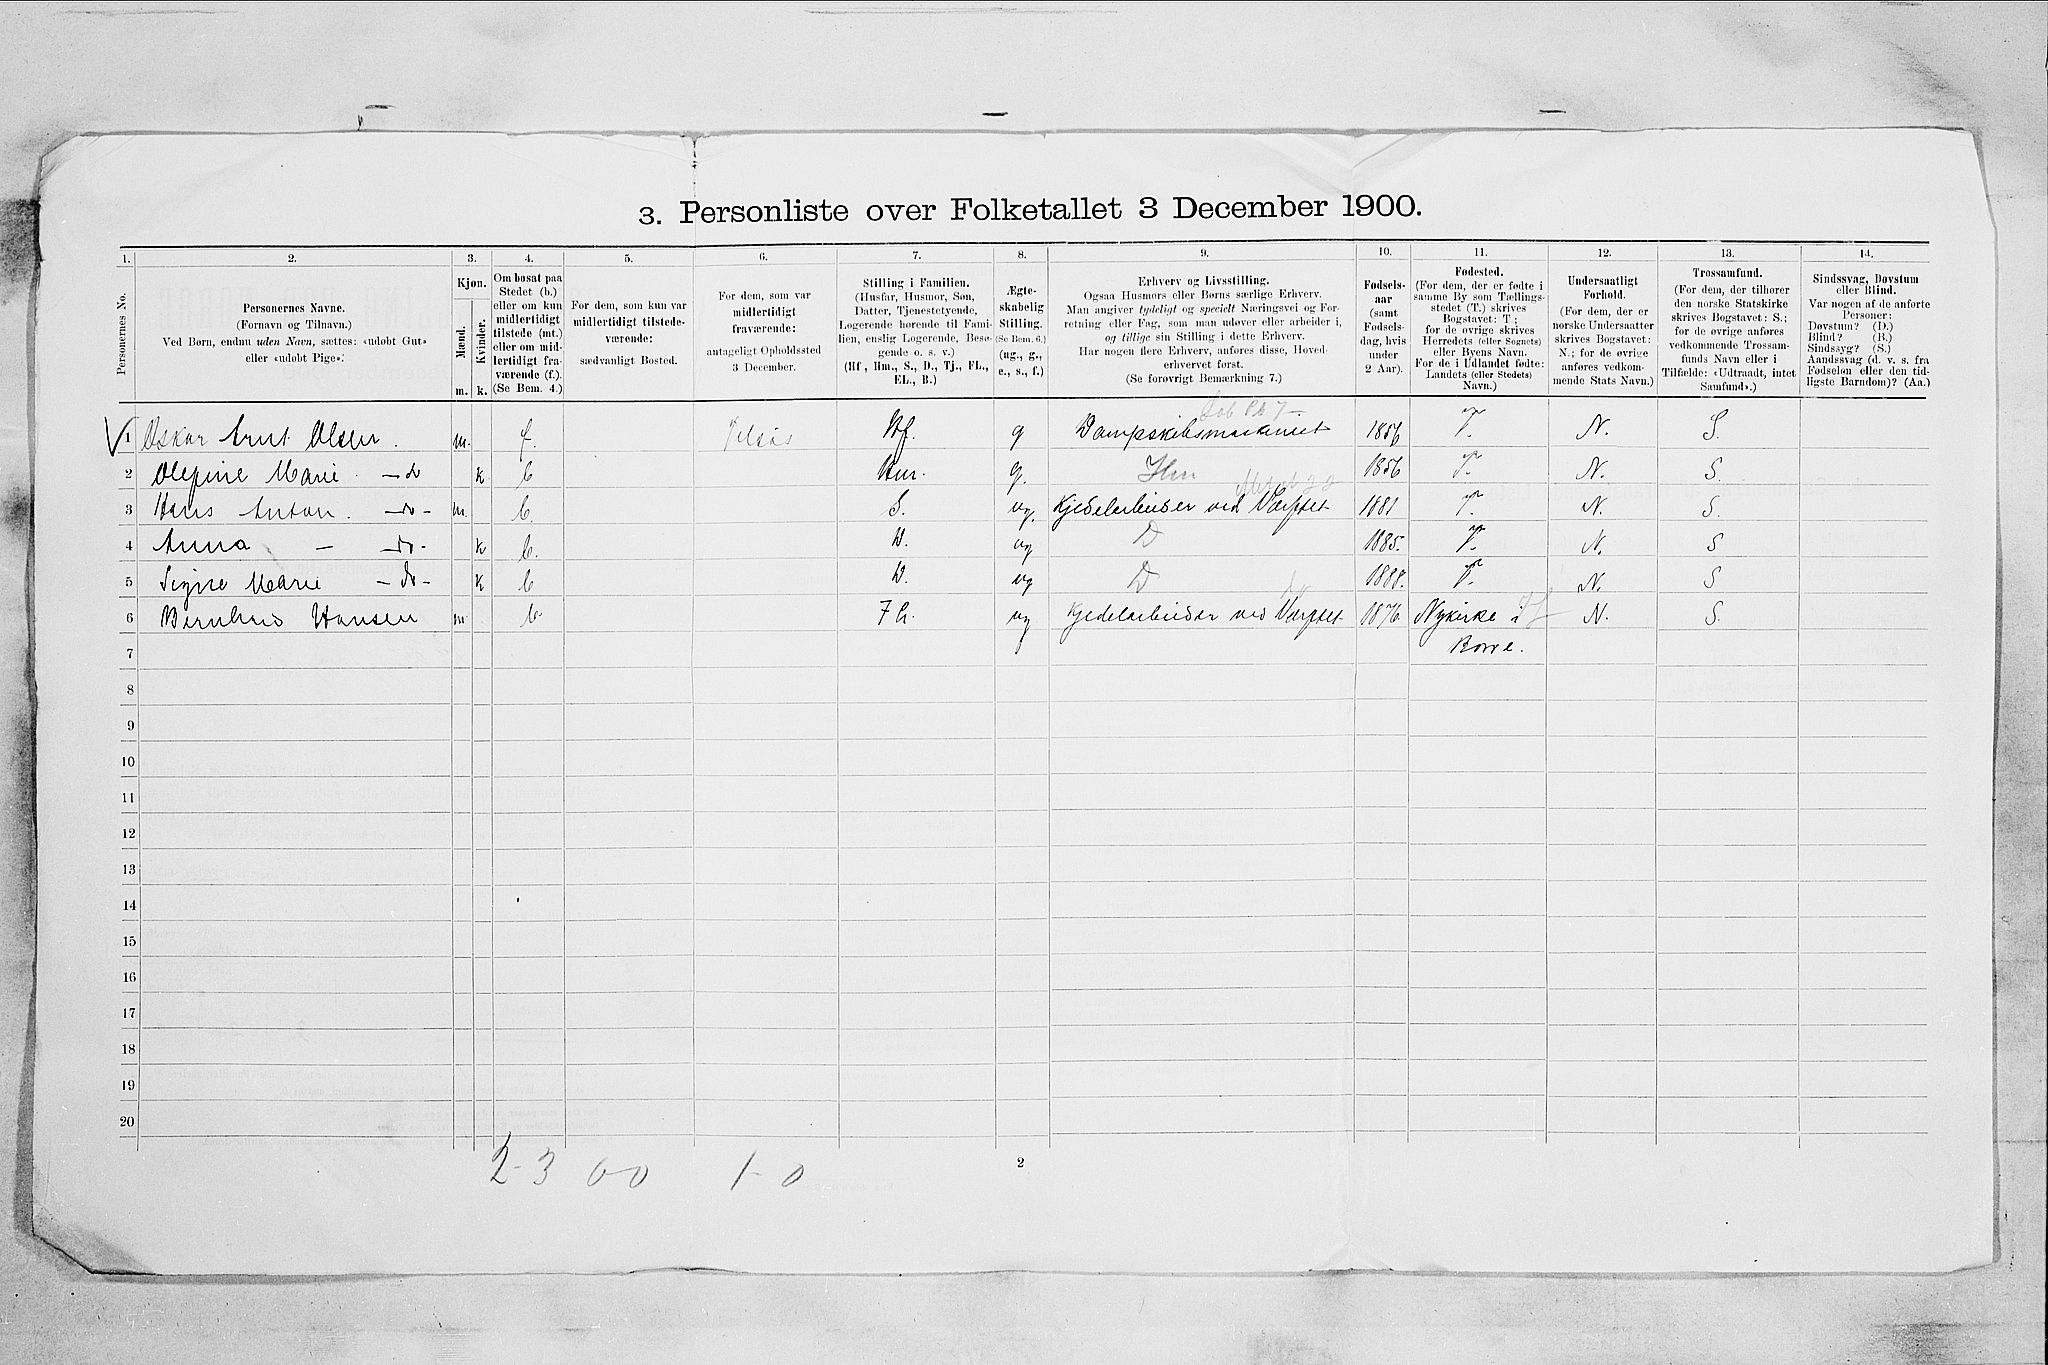 3. Personliste over Folketallet 3 December 1900.
1. 2. 3. 4. 5. 6. 7. 8. 9. 10. 11. 12. 13. 14.
Personernes No.
Personernes Navne.
(Fornavn og Tilnavn.)
Ved Børn, endnu uden Navn, sættes: «udøbt Gut»
eller «udøbt Pige».
Kjøn.
Mænd. Kvinder.
m. k.
Om bosat paa
Stedet (b.)
eller om kun
midlertidigt
tilstede (mt.)
eller om mid-
lertidigt fra-
værende (f.).
(Se Bem. 4.)
For dem, som kun var
midlertidigt tilstede-
værende:
sædvanligt Bosted.
For dem, som var
midlertidigt
fraværende:
antageligt Opholdssted
3 December.
Stilling i Familien.
(Husfar, Husmor, Søn,
Datter, Tjenestetyende,
Logerende hørende til Fami-
lien, enslig Logerende, Besø-
gende o. s. v.)
(Hf., Hm., S., D., Tj., FL.,
EL., B.)
Ægte-
skabelig
Stilling.
(Se Bem. 6.)
(ug., g.,
e., s., f.)
Erhverv og Livsstilling.
Ogsaa Husmors eller Børns særlige Erhverv.
Man angiver tydeligt og specielt Næringsvei og For-
retning eller Fag, som man udøver eller arbeider i,
og tillige sin Stilling i dette Erhverv.
Har nogen flere Erhverv, anføres disse, Hoved-
erhvervet først.
(Se forøvrigt Bemærkning 7.)
Fødsels-
aar
(samt
Fødsels-
dag, hvis
under
2 Aar).
Fødested.
(For dem, der er fødte i
samme By som Tællings-
stedet (T.) skrives
Bogstavet: T;
for de øvrige skrives
Herredets (eller Sognets)
eller Byens Navn.
For de i Udlandet fødte:
Landets (eller Stedets)
Navn.)
Undersaatligt
Forhold.
(For dem, der er
norske Undersaatter
skrives Bogstavet:
N.; for de øvrige
anføres vedkom-
mende Stats Navn.)
Trossamfund.
(For dem, der tilhører
den norske Statskirke
skrives Bogstavet: S.;
for de øvrige anføres
vedkommende Trossam-
funds Navn eller i
Tilfælde: «Udtraadt, intet
Samfund».)
Sindssvag, Døvstum
eller Blind.
Var nogen af de anførte
Personer:
Døvstum? (D.)
Blind? (B.)
Sindssyg? (S.)
Aandssvag (d. v. s. fra
Fødselen eller den tid-
ligste Barndom)? (Aa.)
1 Oskar Arnt Olsen. m. f. Hf. g Dampskibsmaskinist 1856 T. N. S.
2 Olepine Marie - do k b Hm. g. Hm 1856 T. N. S.
3 Hans Anton. - do - m. b. S. ug. Kjedelarbeider ved Værftet 1881 T. N. S.
4 Anna - do - k b. D. ug D 1885. T. N. S
5 Signe Marie - do - k b D. ug D 1888. T. N. S
6 Bernhard Hansen m b F L. ug Kjedelarbeider ved Værftet 1876. Nykirke i N. S.
7 Borre.
8
9
10
11
12
13
14
15
16
17
18
19
20
2-3 0-0 1-0
2